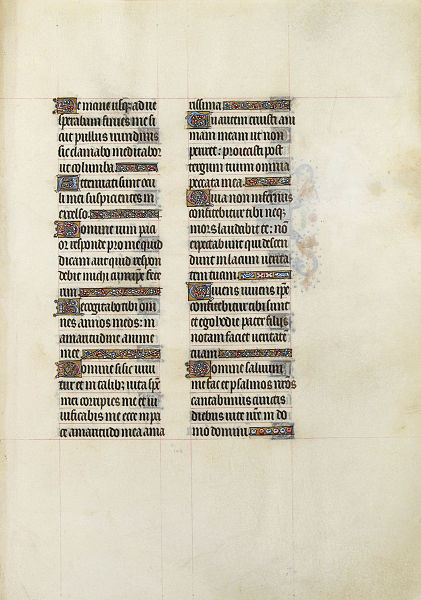 De mane usq; ad ve
speram finies me si
cut pullus yrundinis
sic clamabo meditabor
ut columba.
Attenuati sunt ocu
li mei suspicientes in
excelso.
Domine vim paci
or responde pro me quid
dicam aut quid respon
debit michi cum ipse fece
rim
Recogitabo tibi om
nes annos meos: in
amaritudine anime
mee.
Domine si sic vivi
tur et in talib; vita spūs
mei corripies me et vi
vificabis me ecce in pa
ce amaritudo mea ama
rissima
Tu autem eruisti ani
mam meam ut non
periret: proiecisti post
tergum tuum omnia
peccata mea.
Quia non infernus
confitebitur tibi neq;
mors laudabit te: non
expectabunt qui descen
dunt in lacum verita
tem tuam.
Vivens vivens ipē
confitebitur tibi sicut
et ego hodie pater filiis
notam faciet veritatē
tuam.
Domine salvum
me fac et psalmos nr̄os
cantabimus cunctis
diebus vite nr̄e in do
mo domini.